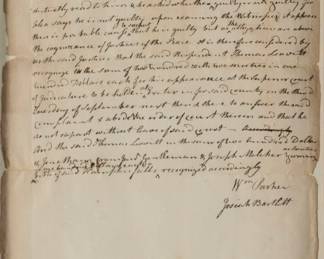 distinctly read to him & asked whether guilty or not guilty
he says he is not guilty, upon examining the Witnesses it appears
there is probable cause to suspect that he is guilty but as offences are above
the cognizance of Justices of the Peace. It is therefore ordered by
us the said Justices that the said Respondent Thomas Lovett
recognize in the sum of two hundred with two sureties in one
hundred Dollars each for his appearance at the Superior court
of Judicature to be holden at Exeter in & for said county on the third
tuesday of September next then & there to answer the said
complaint & abide the order of court thereon and that he
do not depart without leave of said court
And the said Thomas Lovett in the sum of two hundred Dollars
& Jonathan Gentleman & Joseph Melcher
Hampton falls, recognized accordingly
Wm Parker
Josiah Bartlett